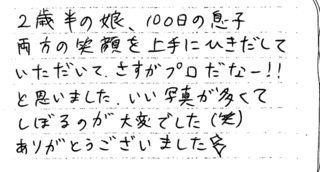 2歳半の娘、100日の息子
両方の笑顔を上手にひきだして
いただいて、さすがプロだなー!!
と思いました、いい写真が多くて
しぼるのが大変でした(笑)
ありがとうございました☆